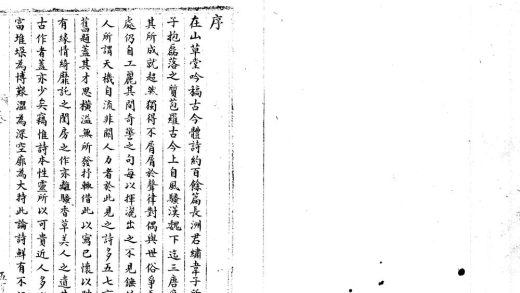 序
在山草堂吟稿古今體詩約百餘篇長洲君繡韋子所
子抱磊落之質苞羅古今上自風騷漢魏下迄三唐
其所成就超然獨得不屑屑於聲律對偶與世俗爭
處仍自工麗其間奇警之句每以揮灑出之不見錘
人所謂天機自流非關人力者於此見之詩多五七
舊題蓋其才思橫溢無所發抒輒借此以寫己懷以
有緣情綺靡託之閨房之作亦離騷香草美人之遺
古作者蓋亦少矣竊惟詩本性靈所以可貴近人多
富堆垛為博艱澀為深空廓為大持此論詩鮮有不